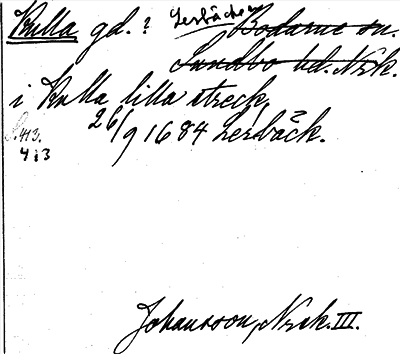 Kulla gd. ? Lerbäcks Bodarne sn.
Sundbo hd. Nrk.
i Kulla lilla streck,
26/9 1684 Lerbäck.
S. 413.
4:3
Johansson, Nrck. III.